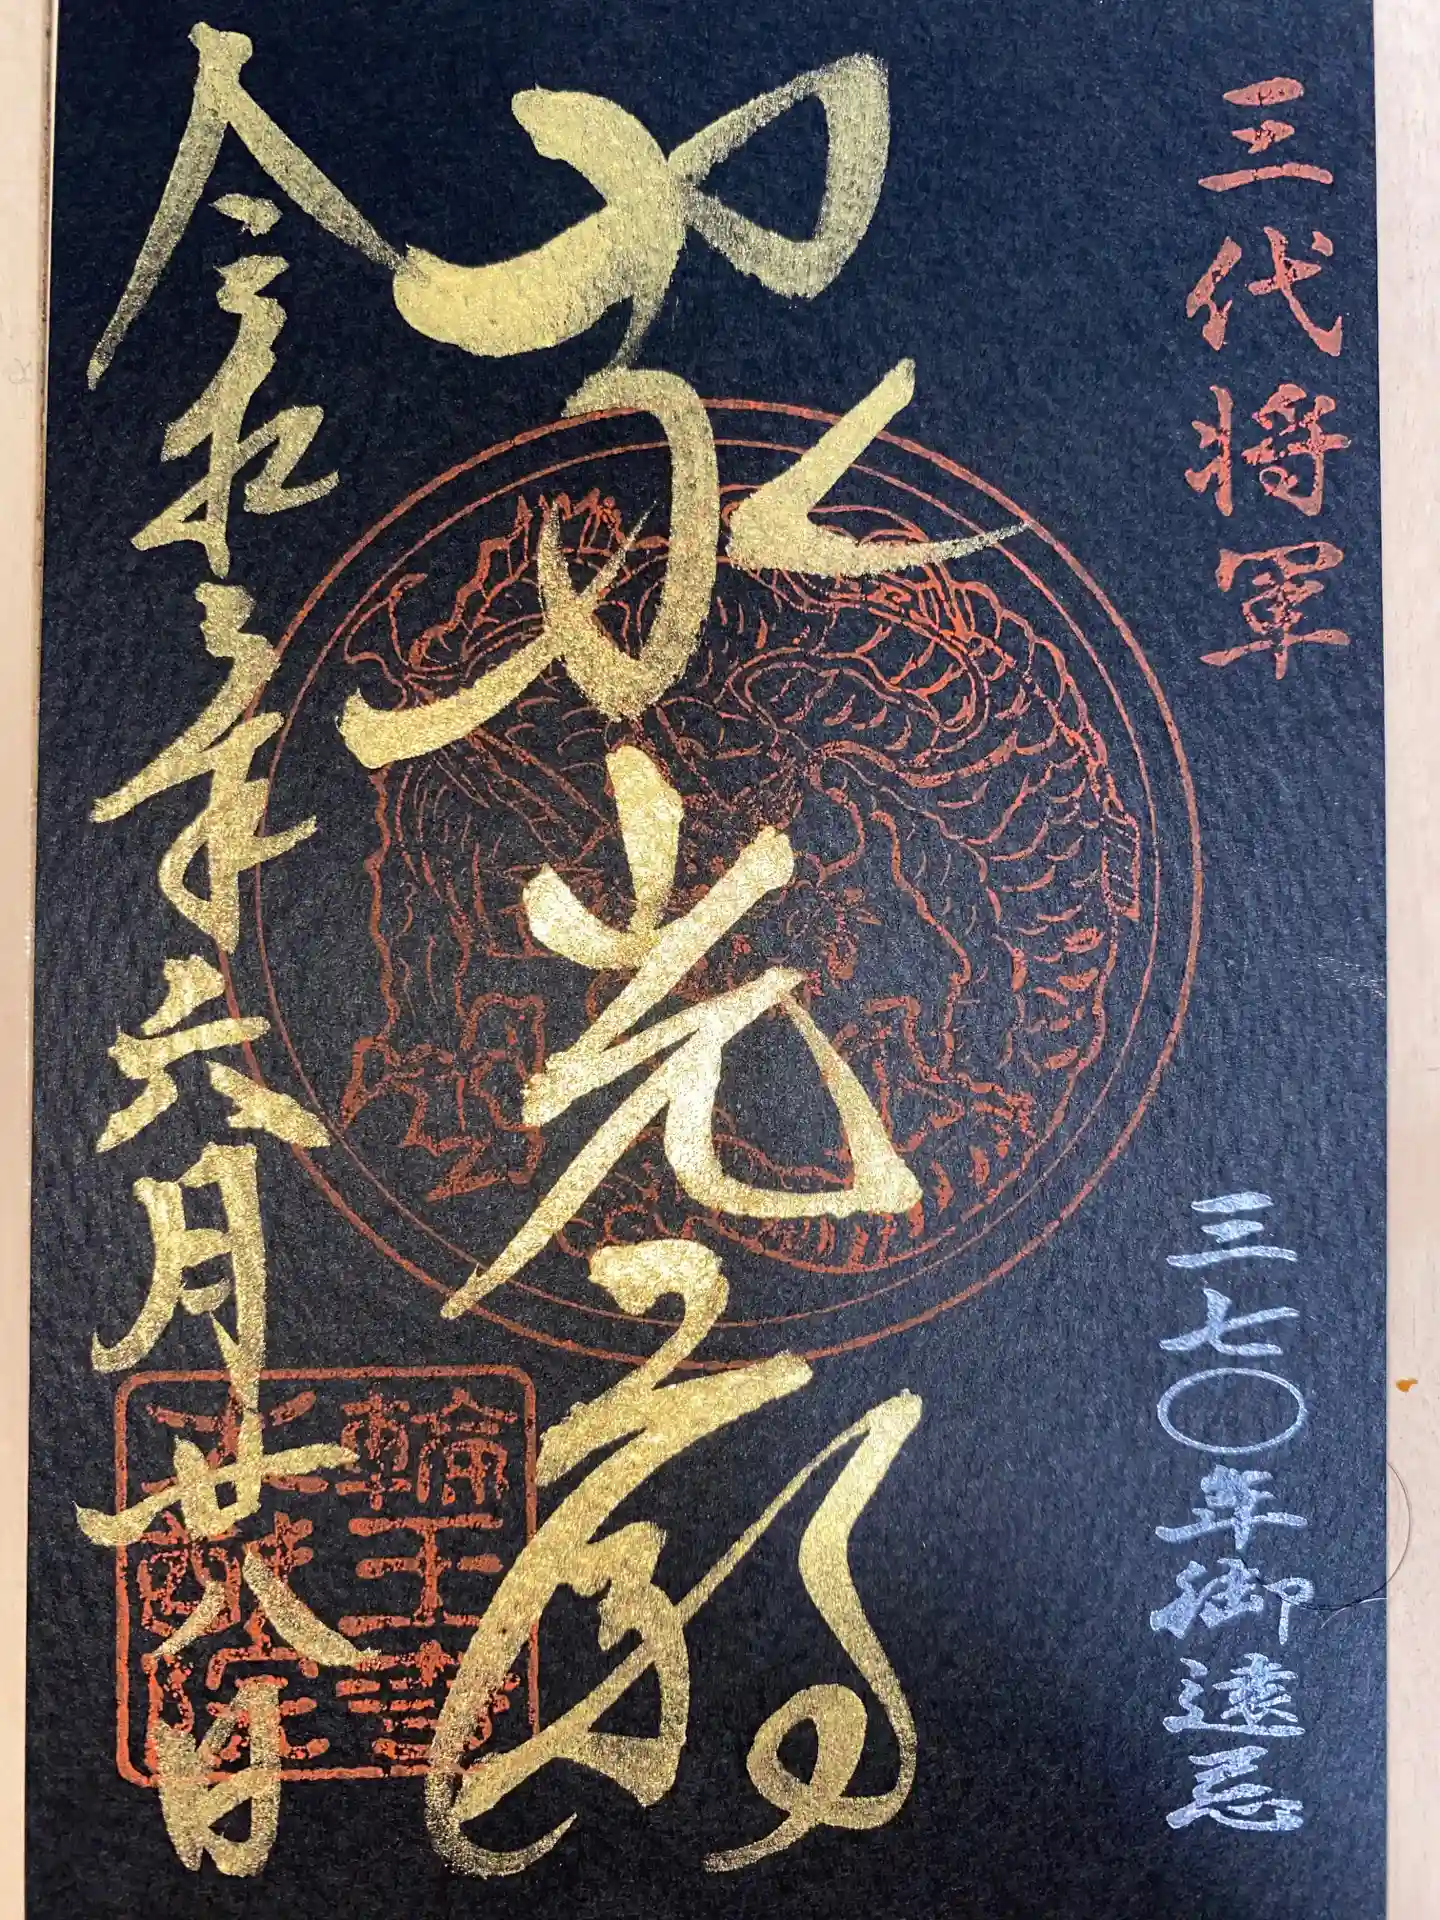 三代将軍
三七〇年御遠忌
家光廟
令和三年六月廿八日
輪王寺
大猷院